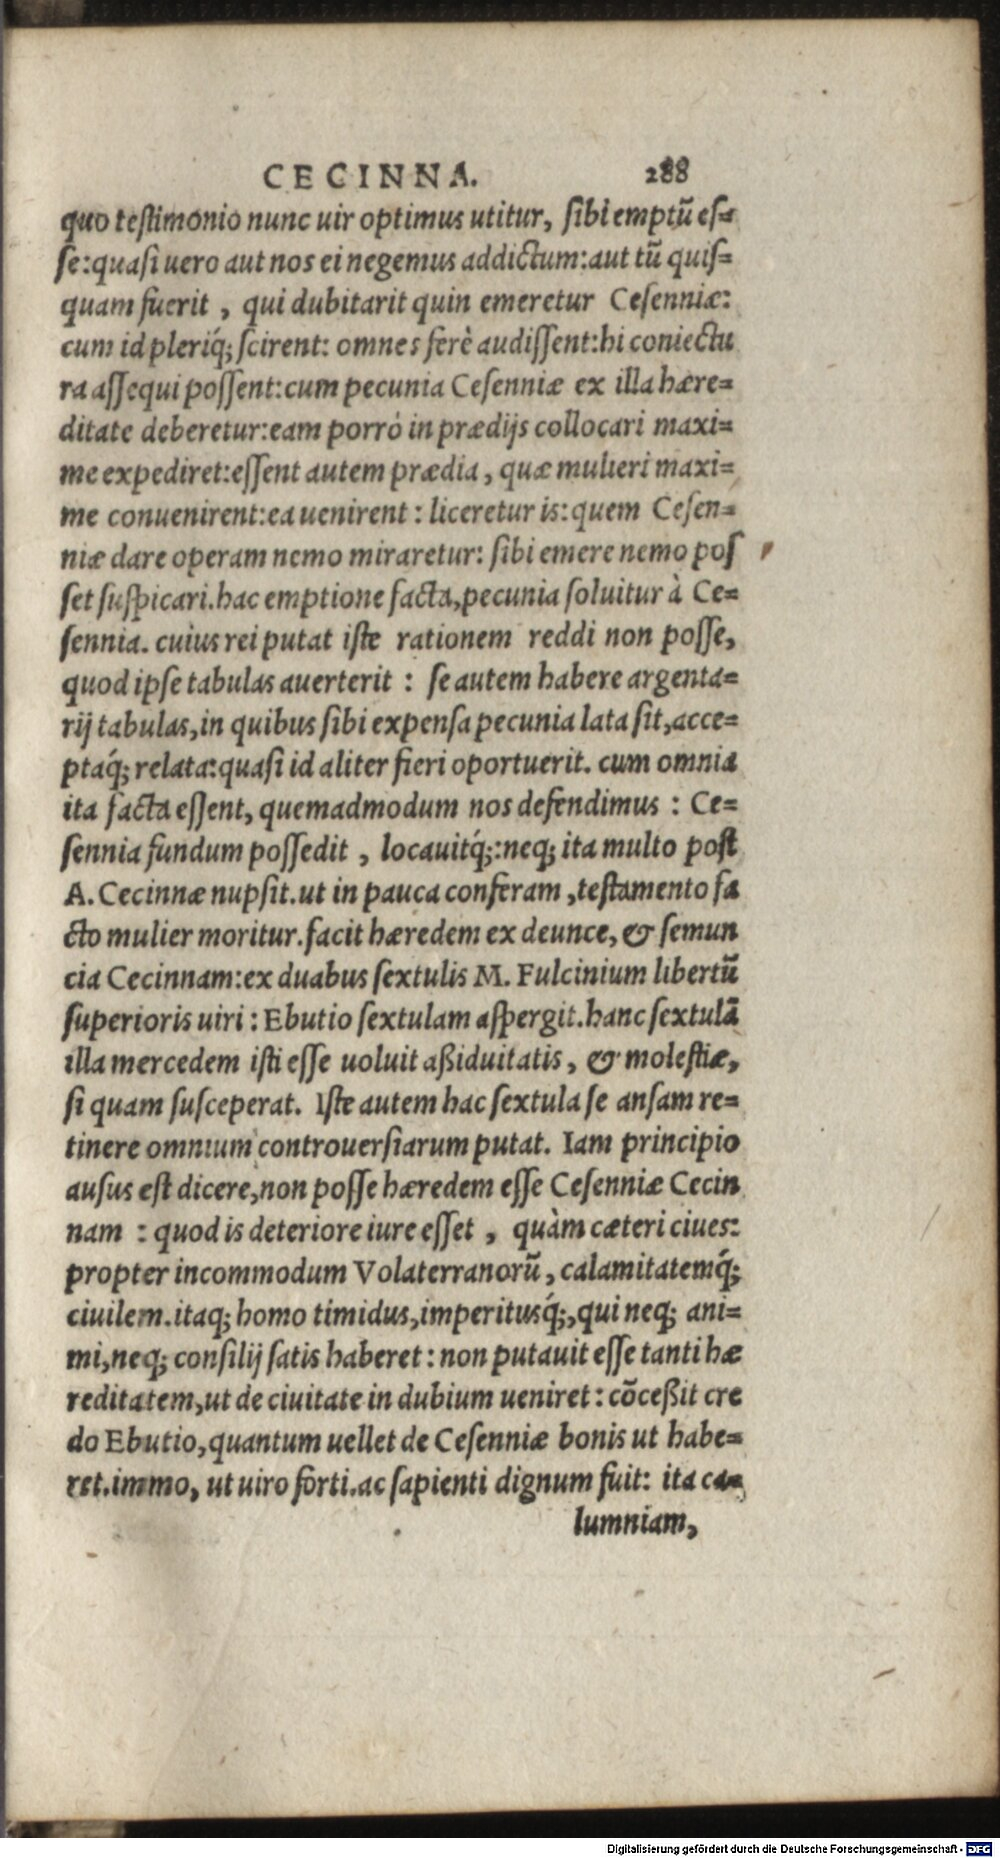 CECINNA. 288
quo testimonio nunc uir optimus utitur, sibi emptū es=
se:quasi uero aut nos ei negemus addictum:aut tū quis=
quam fuerit , qui dubitarit quin emeretur Cesenniæ:
cum id pleriq́; scirent: omnes ferè audissent:hi coniectu
ra assequi possent:cum pecunia Cesenniæ ex illa hære=
ditate deberetur:eam porrò in prædijs collocari maxi=
me expediret:essent autem prædia , quæ mulieri maxi=
me conuenirent:ea uenirent : liceretur is:quem Cesen=
niæ dare operam nemo miraretur: sibi emere nemo pos
set suspicari.hac emptione facta,pecunia soluitur à Ce=
sennia. cuius rei putat iste rationem reddi non posse,
quod ipse tabulas auerterit : se autem habere argenta=
rij tabulas,in quibus sibi expensa pecunia lata sit,acce=
ptaq́; relata:quasi id aliter fieri oportuerit. cum omnia
ita facta essent, quemadmodum nos defendimus : Ce=
sennia fundum possedit , locauitq́;:neq; ita multo post
A. Cecinnæ nupsit.ut in pauca conferam ,testamento fa
cto mulier moritur.facit hæredem ex deunce, & semun
cia Cecinnam:ex duabus sextulis M. Fulcinium libertū
superioris uiri : Ebutio sextulam aspergit.hanc sextulā
illa mercedem isti esse uoluit aßiduitatis , & molestiæ,
si quam susceperat. Iste autem hac sextula se ansam re=
tinere omnium controuersiarum putat. Iam principio
ausus est dicere,non posse hæredem esse Cesenniæ Cecin
nam : quod is deteriore iure esset , quàm cæteri ciues:
propter incommodum Volaterranorū , calamitatemq́;
ciuilem.itaq; homo timidus,imperitusq́;,qui neq; ani=
mi,neq; consilij satis haberet : non putauit esse tanti hæ
reditatem,ut de ciuitate in dubium ueniret : cōceßit cre
do Ebutio,quantum uellet de Cesenniæ bonis ut habe=
ret.immo, ut uiro forti.ac sapienti dignum fuit: ita ca=
lumniam,
Digitalisierung gefördert durch die Deutsche Forschungsgemeinschaft - DFG